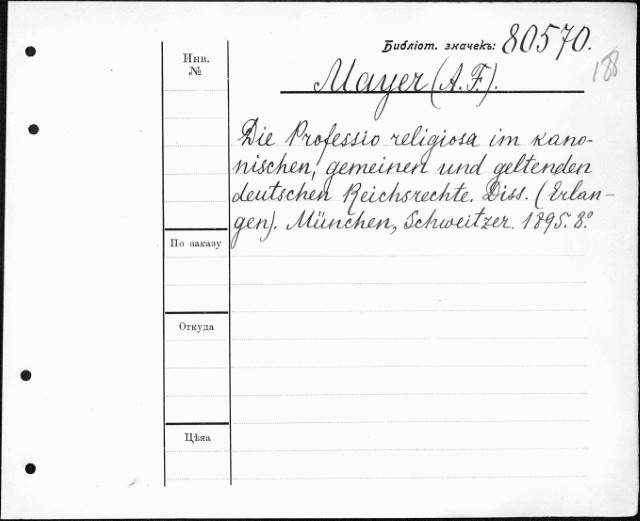 Библіот. значекъ: 80570.
188
Инв.
№
Mayer (A. F.).
Die Professio religiosa im kano-
nischen, gemeinen und geltenden
deutschen Reichsrechte. Diss. (Erlan-
gen). München, Schweitzer. 1895. 8º
По заказу
Откуда
Цѣна